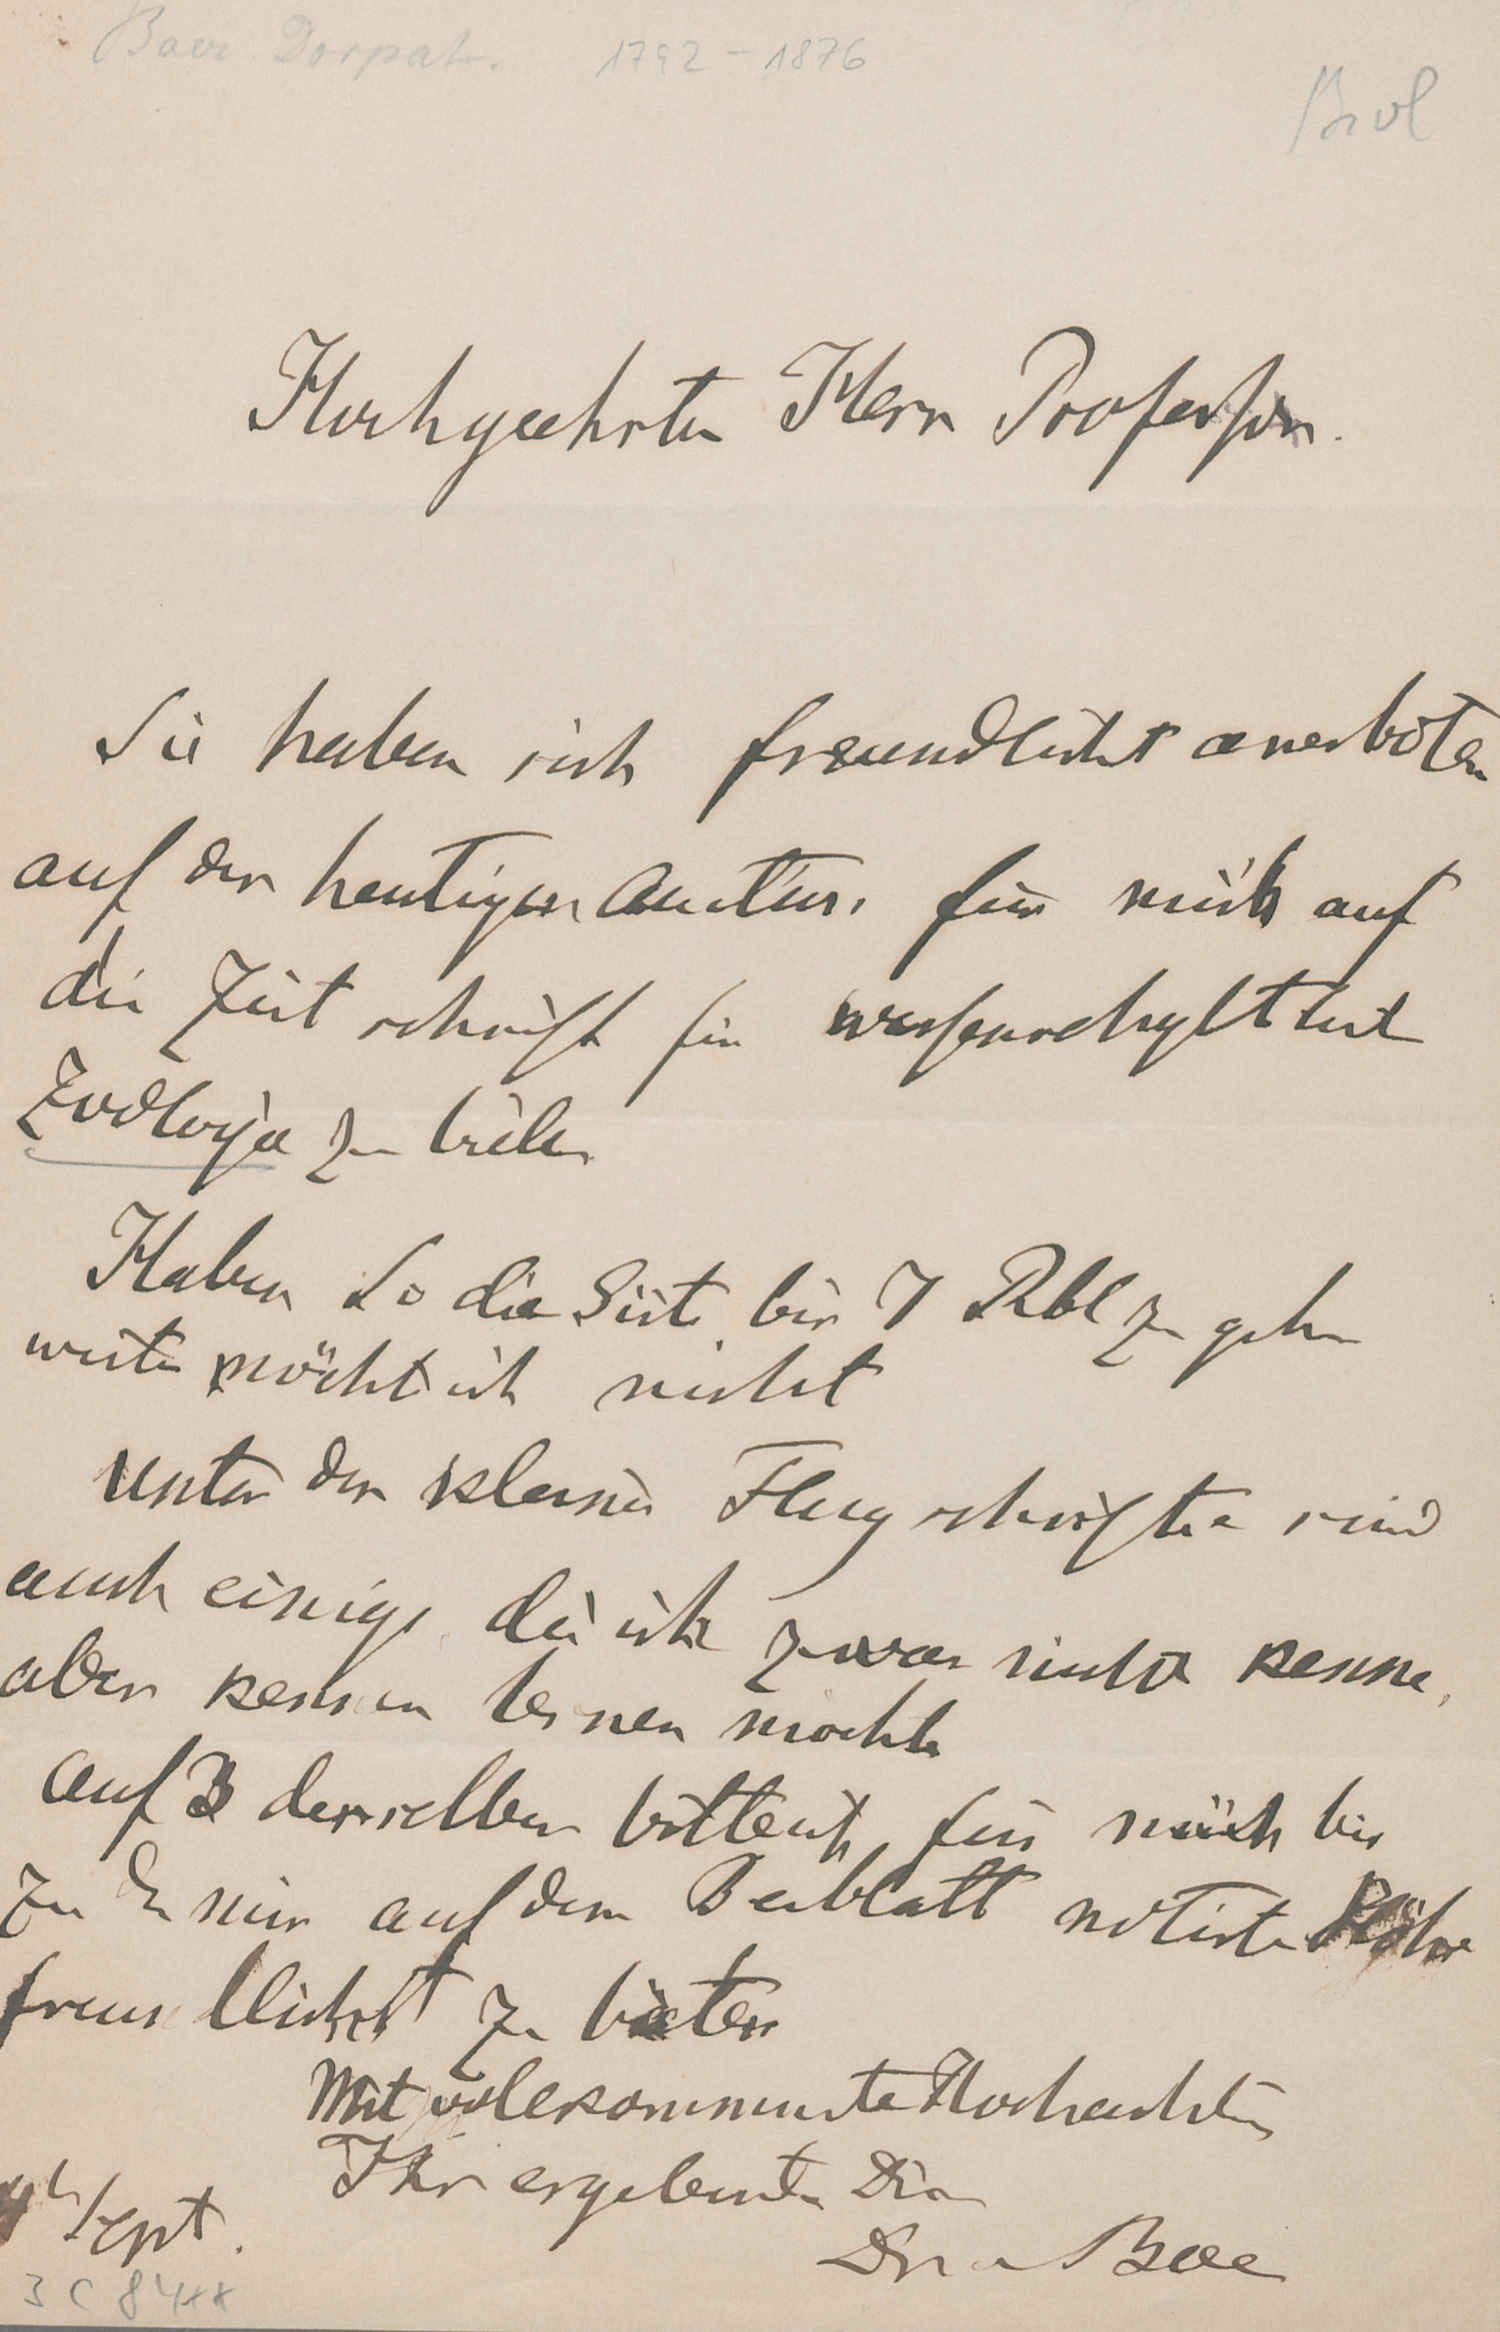 Baer Dorpat. 1792 - 1876
Biol
Hochgeehrter Herr Professor.
Sie haben sich freundlichst anerboten
auf der heutigen Auction für mich auf
die Zeitschrift für wissenschaftlich
Zoologie zu bieten
Haben Sie die Güte bis 7 Rbl zu gehen
weiter möcht ich nicht
Unter den kleinen Flugschriften sind
auch einige die ich zwar nicht kenne,
aber kennen lernen möchte
auf 3 derselben bitte ich für mich bis
zu der auf dem Beiblatt notirten Höhe
freundlichst zu bieten
Mit vollkommenster Hochachtung
Ihr ergebenster
Dr v Baer
4 Sept.
3 C 84